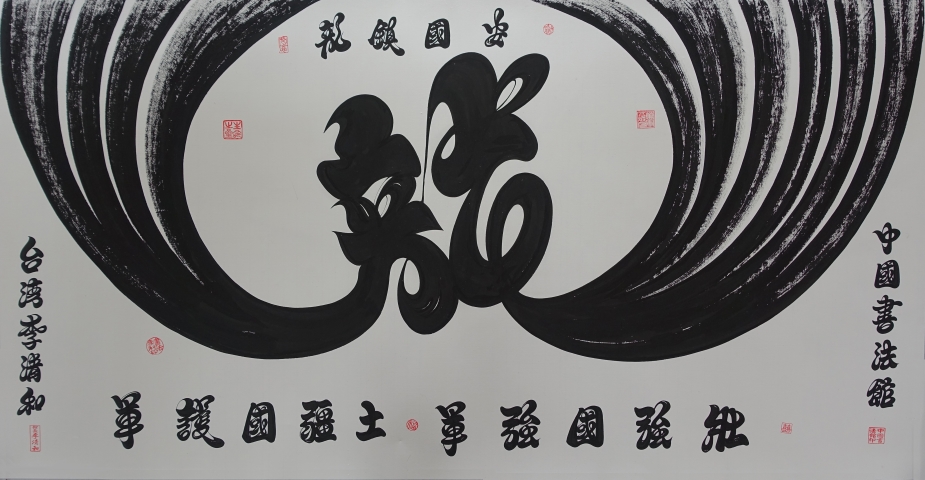 龍鎮國安
龍
中國書法館
台湾李清和
軍護國疆土 軍強國強壯